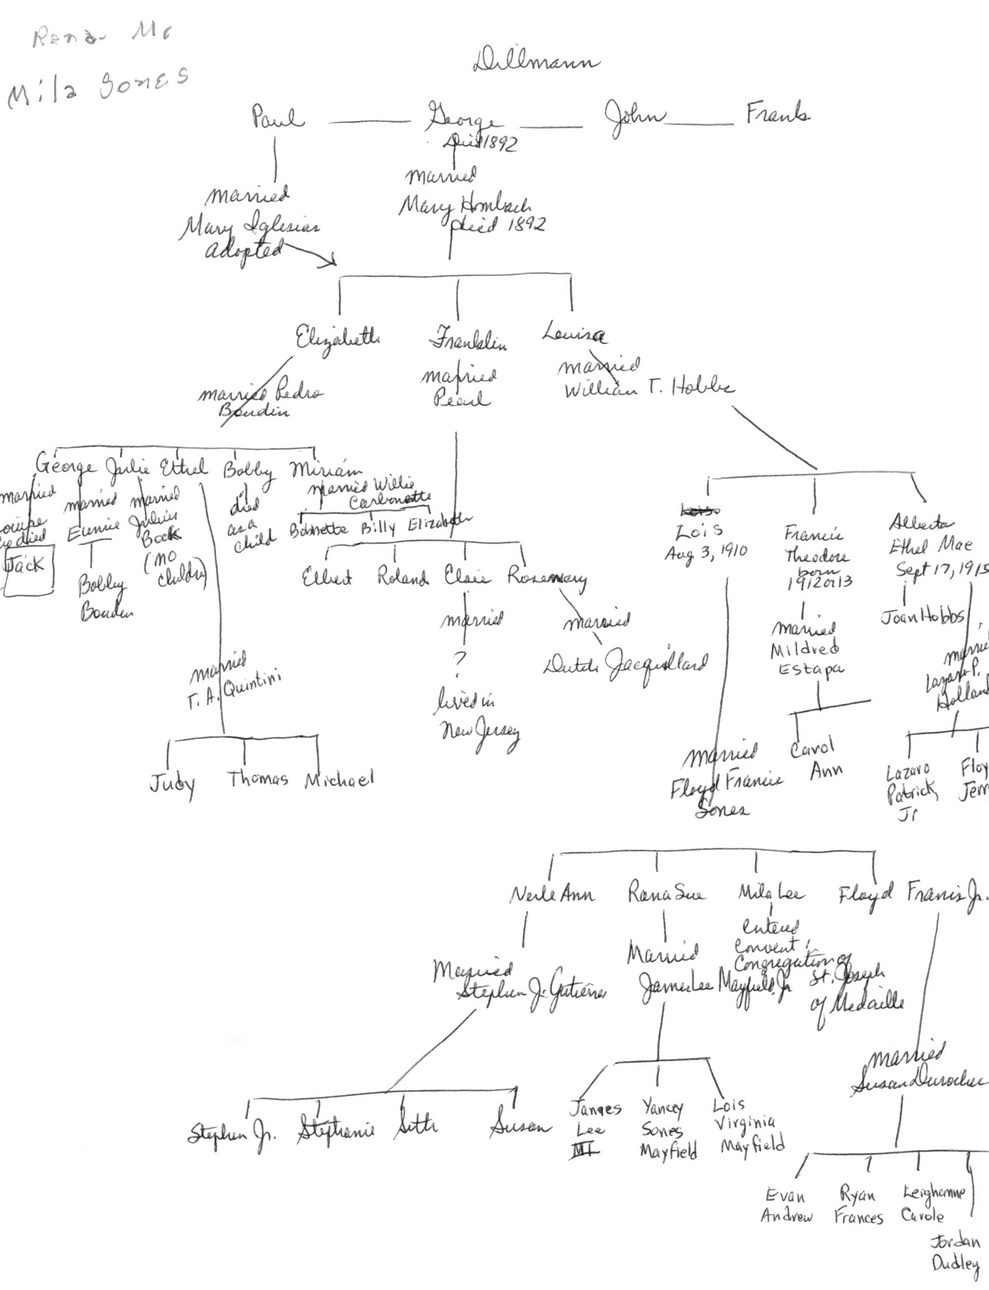 Rena Mc
Mila Sones
Dillmann
Paul George John Frank
Died 1892
married
Mary Hombach
died 1892
married
Mary Iglesias
adopted
Elizabeth Franklin Louisa
married Pedro
Boudin
married
Pearl
married
William T. Hobbs
George Julie Ethel Bobby Miriam
married
died
Jack
married
Eunice
Bobby
Boudin
married
Julius
Bock
(no
children)
died
as a
child
married Willie
Carbonette
Billy Elizabeth
Elbert Roland Elsie Rosemary
married
?
lived in
New Jersey
married
Dutch Jacquillard
married
T. A. Quintini
Judy Thomas Michael
Lois
Lois
Aug 3, 1910
Francis
Theodore
born
1912 or 13
Alberta
Ethel Mae
Sept 17, 1915
Joan Hobbs
married
Mildred
Estapa
Carol
Ann
married
Lazaro P.
Holland
Lazaro
Patrick,
Jr
married
Floyd Francis
Sones
Nerle Ann Rena Sue Mila Lee Floyd Francis Jr.
Married
Stephen J. Gutierres
Married
James Lee Mayfield, Jr
entered
convent:
Congregation of
St. Joseph
of Medaille
married
Susan Durocher
Stephen Jr. Stephanie Seth Susan
James
Lee
III
Yancey
Sones
Mayfield
Lois
Virginia
Mayfield
Evan
Andrew
Ryan
Frances
Leighanne
Carole
Jordan
Dudley